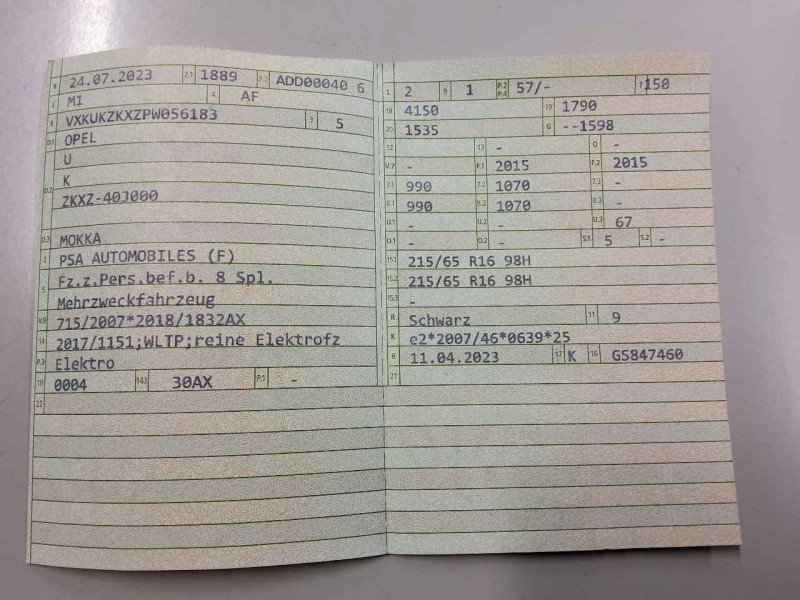 B 24.07.2023 2.1 1889 2.2 ADD00040 6
J M1 4 AF
E VXKUKZKXZPW056183 3 5
D.1 OPEL
U
D.2 K
ZKXZ-40J000
D.3 MOKKA
2 PSA AUTOMOBILES (F)
5 Fz.z.Pers.bef.b. 8 Spl.
Mehrzweckfahrzeug
V.9 715/2007*2018/1832AX
14 2017/1151;WLTP;reine Elektrofz
P.3 Elektro
10 0004 14.1 30AX P.1 -
22
L 2 9 1 P.2 P.4 57/- T 150
18 4150 19 1790
20 1535 G --1598
12 - 13 - Q -
V.7 - F.1 2015 F.2 2015
7.1 990 7.2 1070 7.3 -
8.1 990 8.2 1070 8.3 -
U.1 - U.2 - U.3 67
O.1 - O.2 - S.1 5 S.2 -
15.1 215/65 R16 98H
15.2 215/65 R16 98H
15.3 -
R Schwarz 11 9
K e2*2007/46*0639*25
6 11.04.2023 17 K 16 GS847460
21